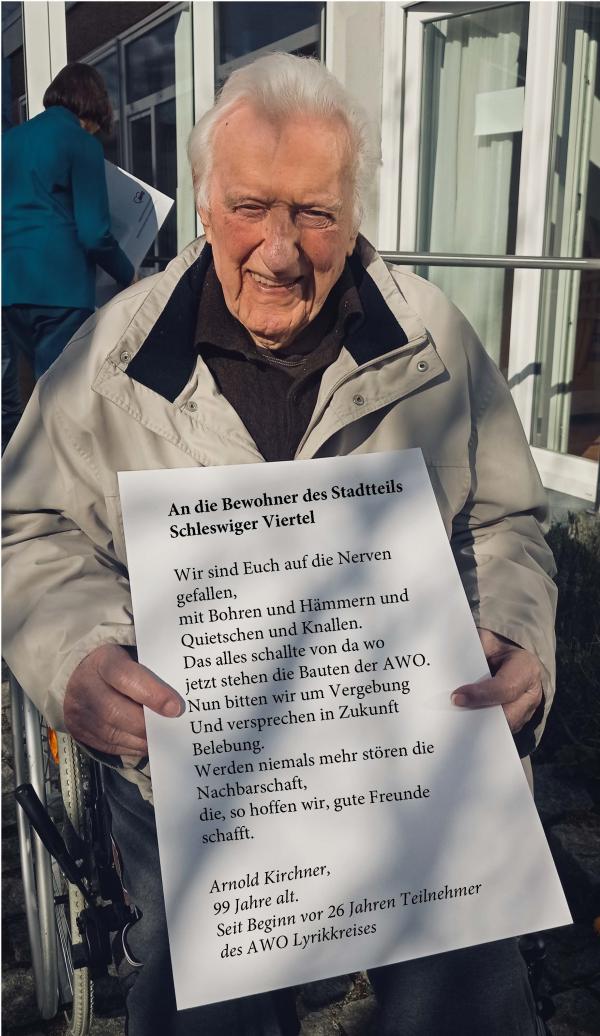 An die Bewohner des Stadtteils
Schleswiger Viertel
Wir sind Euch auf die Nerven
gefallen,
mit Bohren und Hämmern und
Quietschen und Knallen.
Das alles schallte von da wo
jetzt stehen die Bauten der AWO.
Nun bitten wir um Vergebung
Und versprechen in Zukunft
Belebung.
Werden niemals mehr stören die
Nachbarschaft,
die, so hoffen wir, gute Freunde
schafft.
Arnold Kirchner,
99 Jahre alt.
Seit Beginn vor 26 Jahren Teilnehmer
des AWO Lyrikkreises